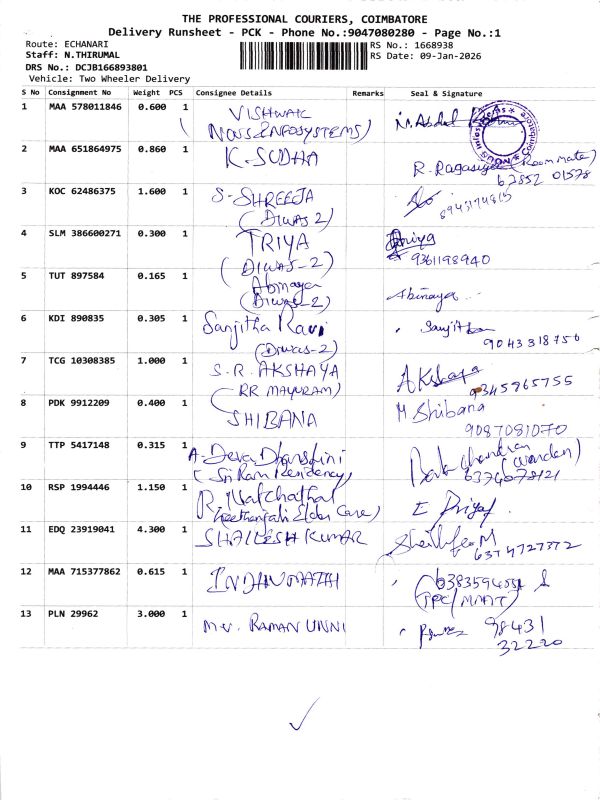 THE PROFESSIONAL COURIERS, COIMBATORE
Delivery Runsheet - PCK - Phone No.:9047080280 - Page No.:1
Route: ECHANARI
RS No.: 1668938
Staff: N.THIRUMAL
RS Date: 09-Jan-2026
DRS No.: DCJB166893801
Vehicle: Two Wheeler Delivery
S No Consignment No Weight PCS Consignee Details Remarks Seal & Signature
1 MAA 578011846 0.600 1 VISHWAK
(NOUS INFOSYSTEMS)
2 MAA 651864975 0.860 1 K-SUDHA
(Room mate)
63852 01578
3 KOC 62486375 1.600 1 S-SHREEJA
(DIWAS 2)
8943174815
4 SLM 386600271 0.300 1 TRIYA
(DIWAS-2)
9361198940
5 TUT 897584 0.165 1 Abinaya Abinaya
(Diwas-2)
6 KDI 890835 0.305 1 Sanjitha Ravi
(Diwas-2) 9043318756
7 TCG 10308385 1.000 1 S-R. AKSHAYA AKshaya
(RR MAYURAM) 9345965755
8 PDK 9912209 0.400 1 SHIBANA M Shibana
9087081070
9 TTP 5417148 0.315 1 A-Deva Dharshini
(Sri Ram Residency) (Warden)
10 RSP 1994446 1.150 1
(Geethanjali Elder Care)
11 EDQ 23919041 4.300 1 SHAILESH KUMAR
6374727372
12 MAA 715377862 0.615 1 INDHUMATHI
13 PLN 29962 3.000 1 RAMAN UNNI 98431
32220